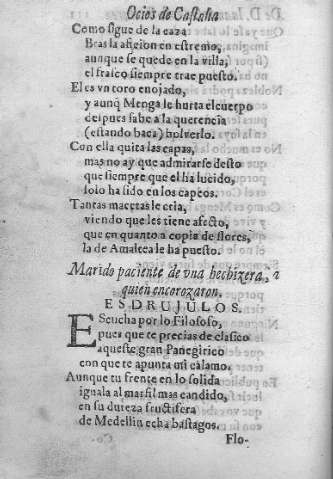 Ocios de Castalia
Como sigue de la caza
Bras la aficion en estremo,
aunque se quede en la villa,
el frasco siempre trae puesto.
El es vn toro enojado,
y aunq̃ Menga le hurta el cuerpo
despues sabe a la querencia
(estando baca) bolverlo.
Con ella quita las capas,
mas no ay que admirarse desto
que siempre que el ha lucido,
solo ha sido en los capeos.
Tantas macetas le cria,
viendo que les tiene afecto,
que en quanto a copia de flores,
la de Amaltea le ha puesto.
Marido paciente de vna hechizera, à
quien encorozaron.
ESDRUJULOS.
EScucha por lo Filosofo,
pues que te precias de clasico
aqueste gran Panegirico
con que te apunta mi calamo.
Aunque tu frente en lo solida
iguala al marfil mas candido,
en su dureza fructifera
de Medellin echa bastagos.
Flo-